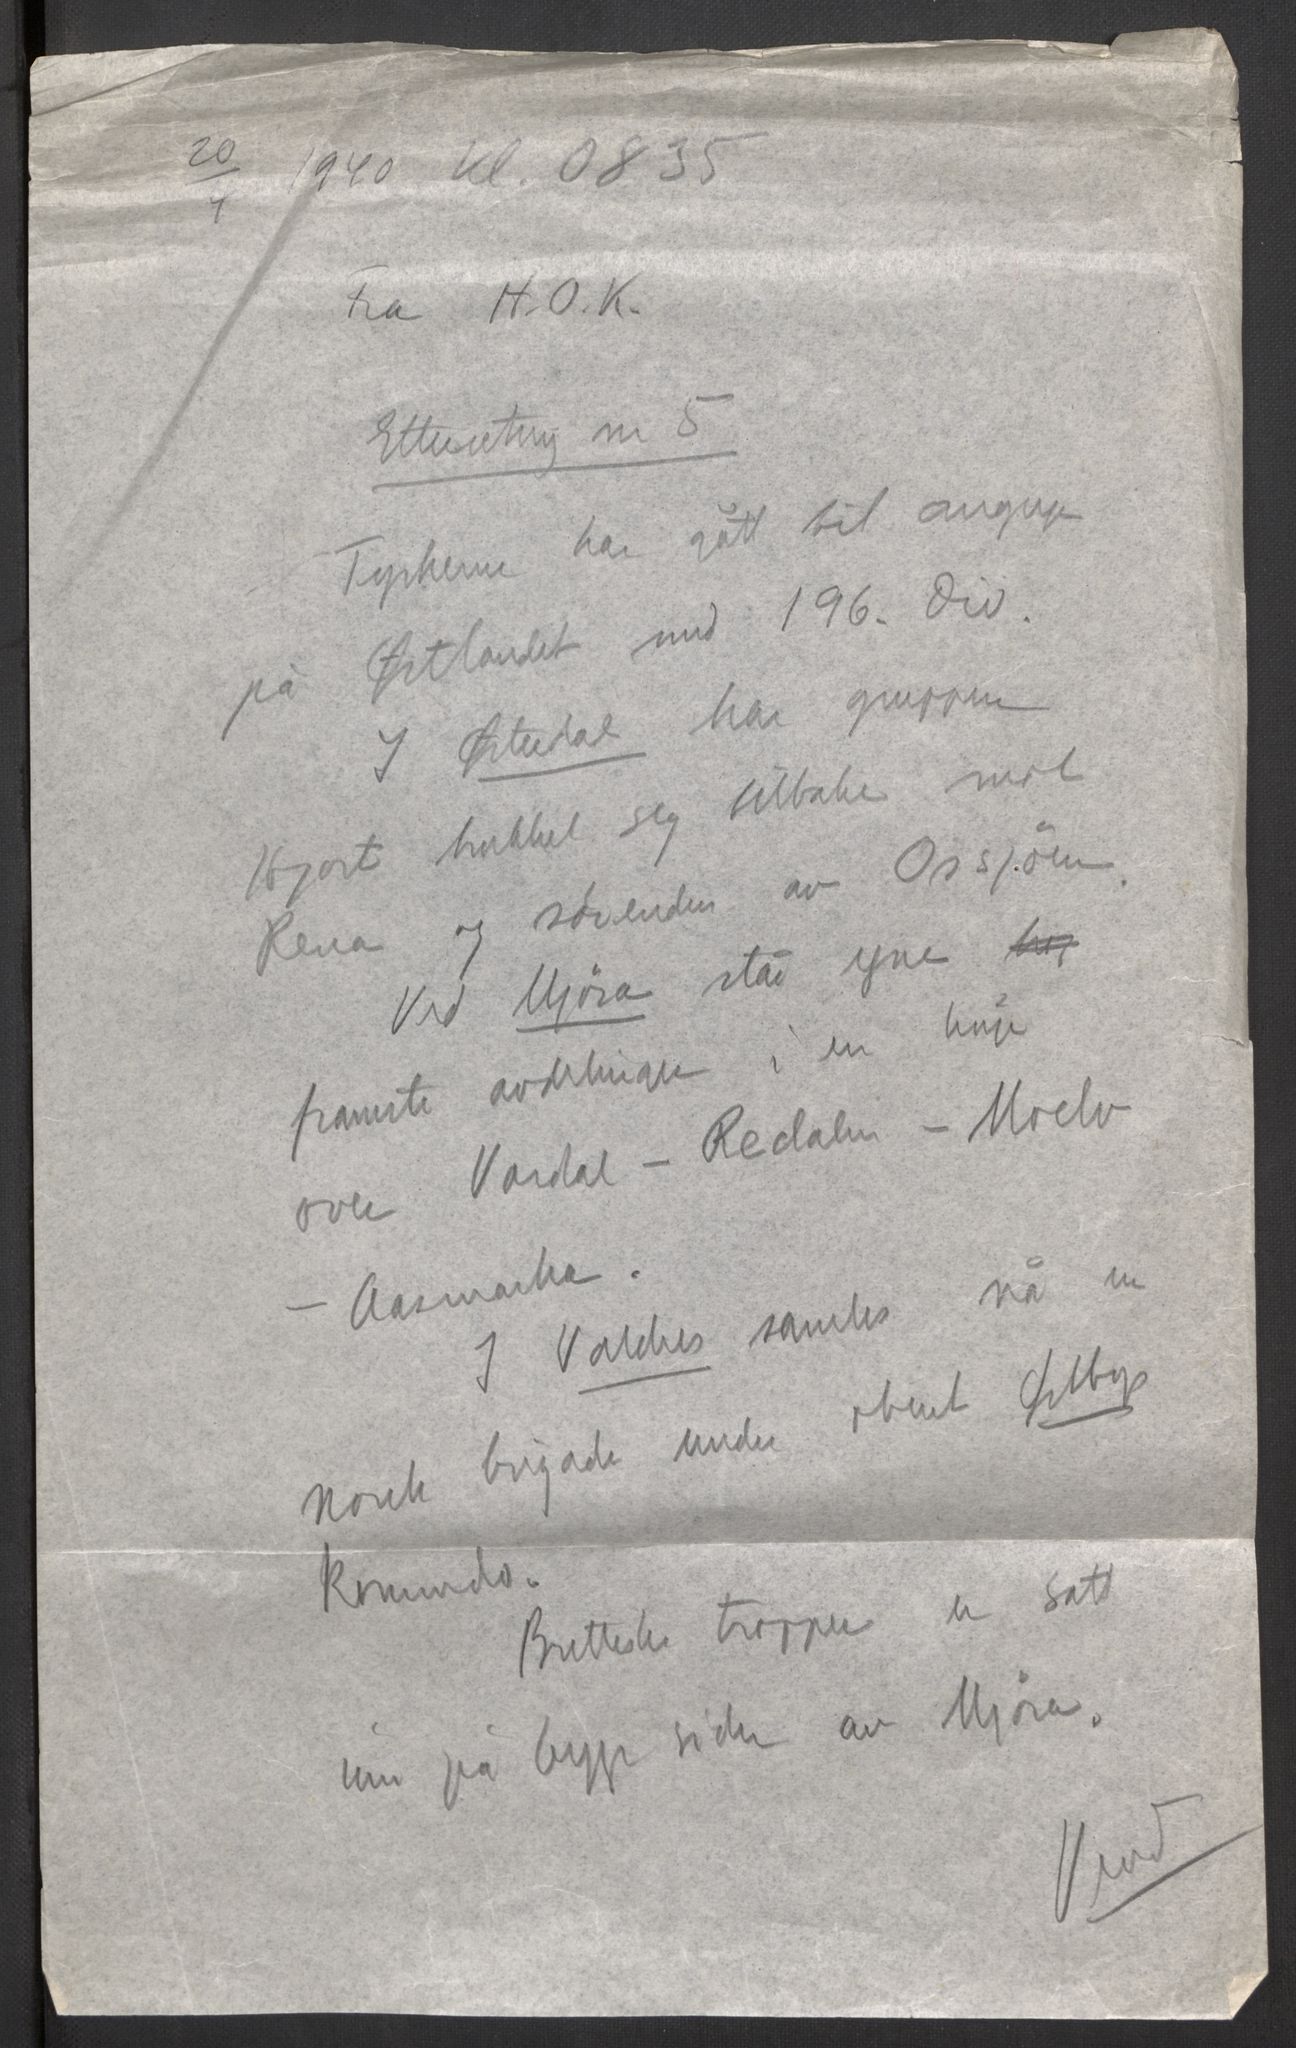 20/4 1940 kl. 0835
Fra H.O.K.
Etterretning nr 5
Tyskerne har gått til angrep
på Østlandet med 196. Div.
I Østerdal har gruppen
Hjort trukket seg tilbake mot
Rena og sörenden av Ossjöen.
Ved Mjösa står egne
framste avdelinger i en linje
over Vardal – Redalen – Moelv
– Aasmarka.
I Valdres samles nå en
norsk brigade under oberst Østbye
Kommando.
Bretteske tropper er satt
inn på begge sider av Mjösa.